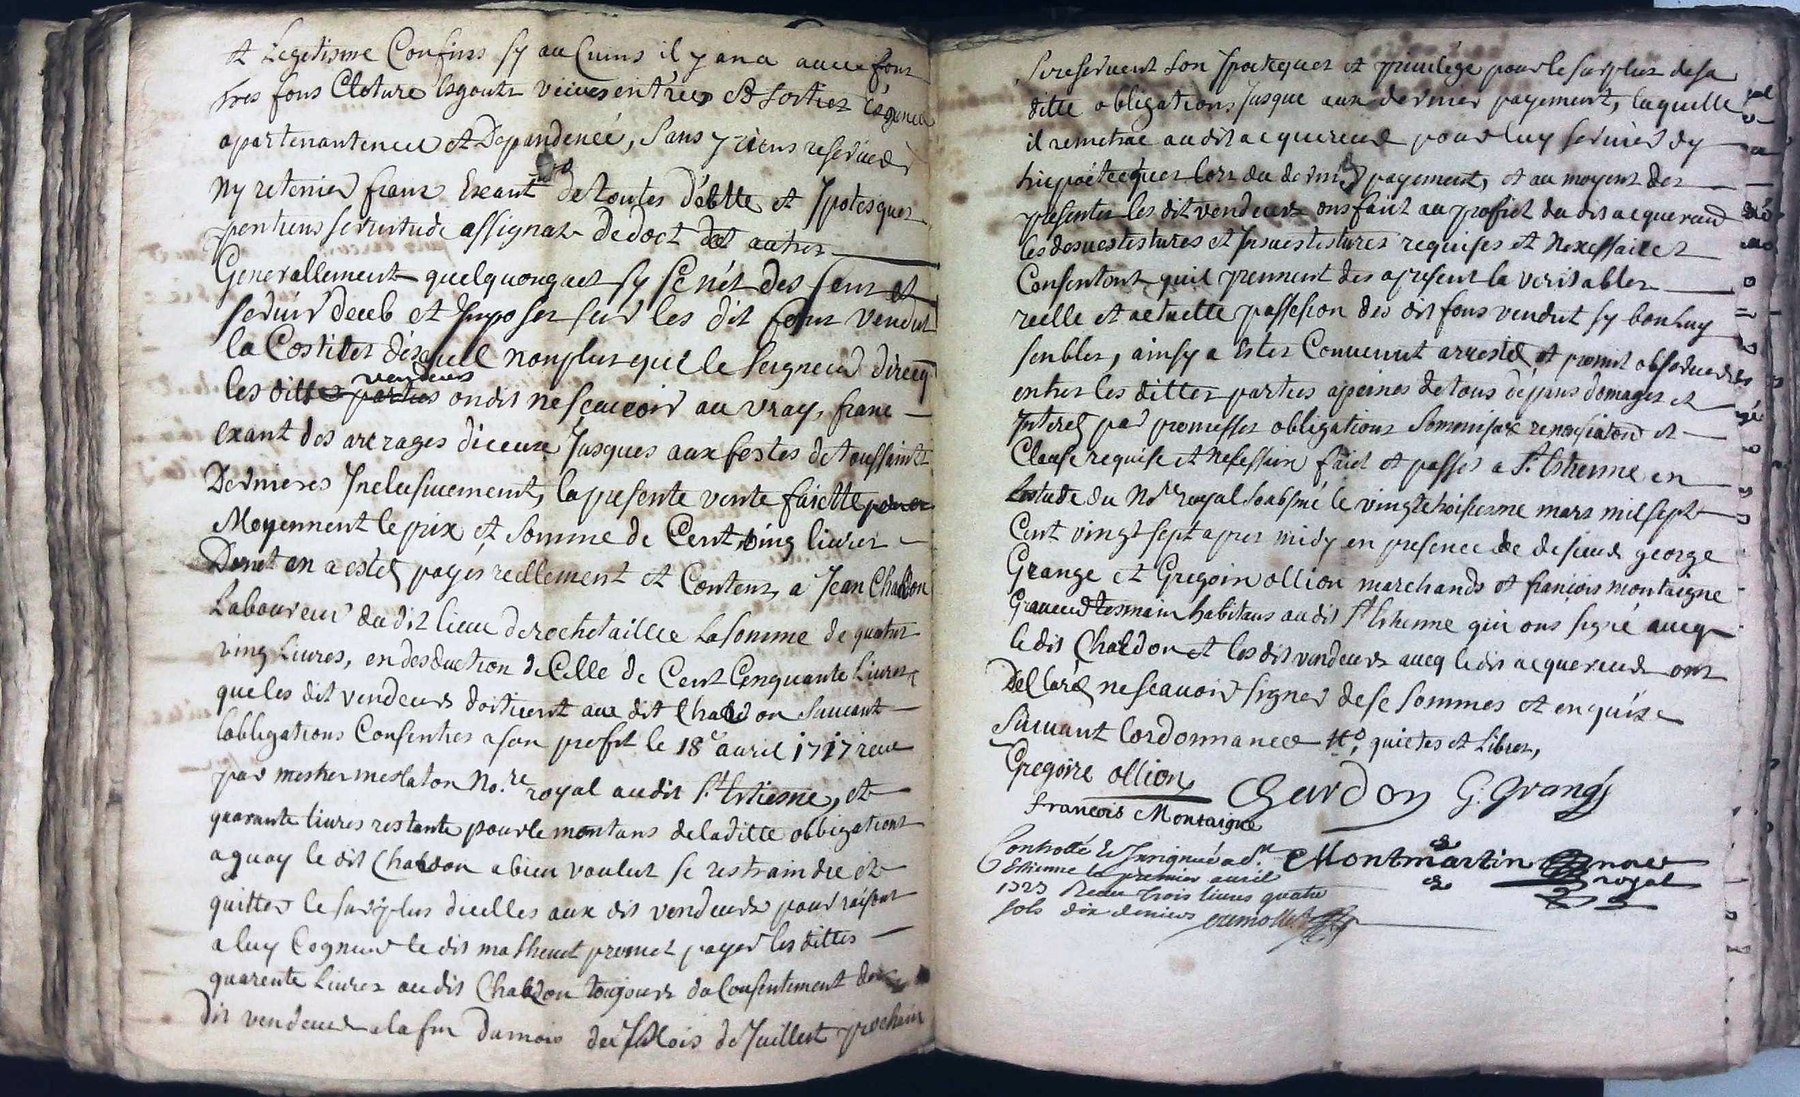 et Legetisme Confins sy aucuns il y en a avec fons
tres fons Cloture Esgouts veües entrées et sorties
apartenantence et Depandenceé, Sans y riens reserver
ny retenier franx Exant de toutes debtte et Ypotesques
pentiens servitude assignats de doct et autres
Generallement quelquonques sy Se nét des Cens et
servis deub et Imposes sur les dit fons vendut
la Cottitet desquel nonplus que le Seigneur direcq
les dittes parties vendeurs ondit ne Scavoir au vray, franc
exant des arerages diceux Jusques aux festes de toussaints
Dernieres Inclusivement, la presente vente faicte
Moyennent le prix et somme de Cent ving livres
Donet en a estés payés reellement et Contens a Jean Chardon
Laboureur du dit lieux de rochetaillee La somme de quatres
ving Livres, en desduction de Celle de Cent Cenquante Livres
que les dit vendeurs doitvent aux dit Chardon Suivant
lobligations Consenties a son profit le 18e avril 1717 receu
par mestier meslaton No.re royal au dit St Estienne, et
quarante livres restante pour le montans de laditte obbigations
a quoy le dit Chardon a bien voulut se restraindre et
quitter le surplus dicelles aux dit vendeurs pour raisons
a luy Cogneue le dit mathevet promet payer les dittes
quarente Livres au dit Chardon toujours du Consentement des
dit vendeurs a la fin du mois de Juillest prochain
se reservent son Ypotecques et privilége pour le surplus de sa
ditte obligations Jusque aux dernier payement, laquelle
il remetrae audit acquereur pour luy servier dy
hiepotecques lors du dernier payement, et au moyent des
presentes les dit vendeurs ons fait au profict du dit acquereur
les desvestistures et Investistures requises et Nexessaires
Consentont quil prennent des apresent la veritables
reelle et actuelle possesion des dit fons vendut sy bon luy
sembles, ainsy a Estes Convenut arrestés et promit observer
entres les dittes parties apeines de tous dépans domages et
Interes par promesses obligations Sommisions renonsiations et
Clause requise et Nesessere faict et passés a St Estienne en
Lestude du No.re royal soubsiné le vingtroisiesme mars mil sept
Cent vingt sept apres midy en presence de de sieur george
Grange et Gregoire ollion marchands et francois montaigne
Graveur tesmain habitans audit St Estienne qui ons signé avecq
le dit Chardon et les dit vendeurs avecq le dit acquereur ont
Declaré ne scavoir signer de se sommes et enquise
suivant lordonnance quictes et Libres,
Gregoire ollion Chardon G. Grange
francois Montaigne
Controllé et Insignué a St Montmartin nore
Estienne le premier avril royal
1727 Receu trois livres quatre
sols dix deniers